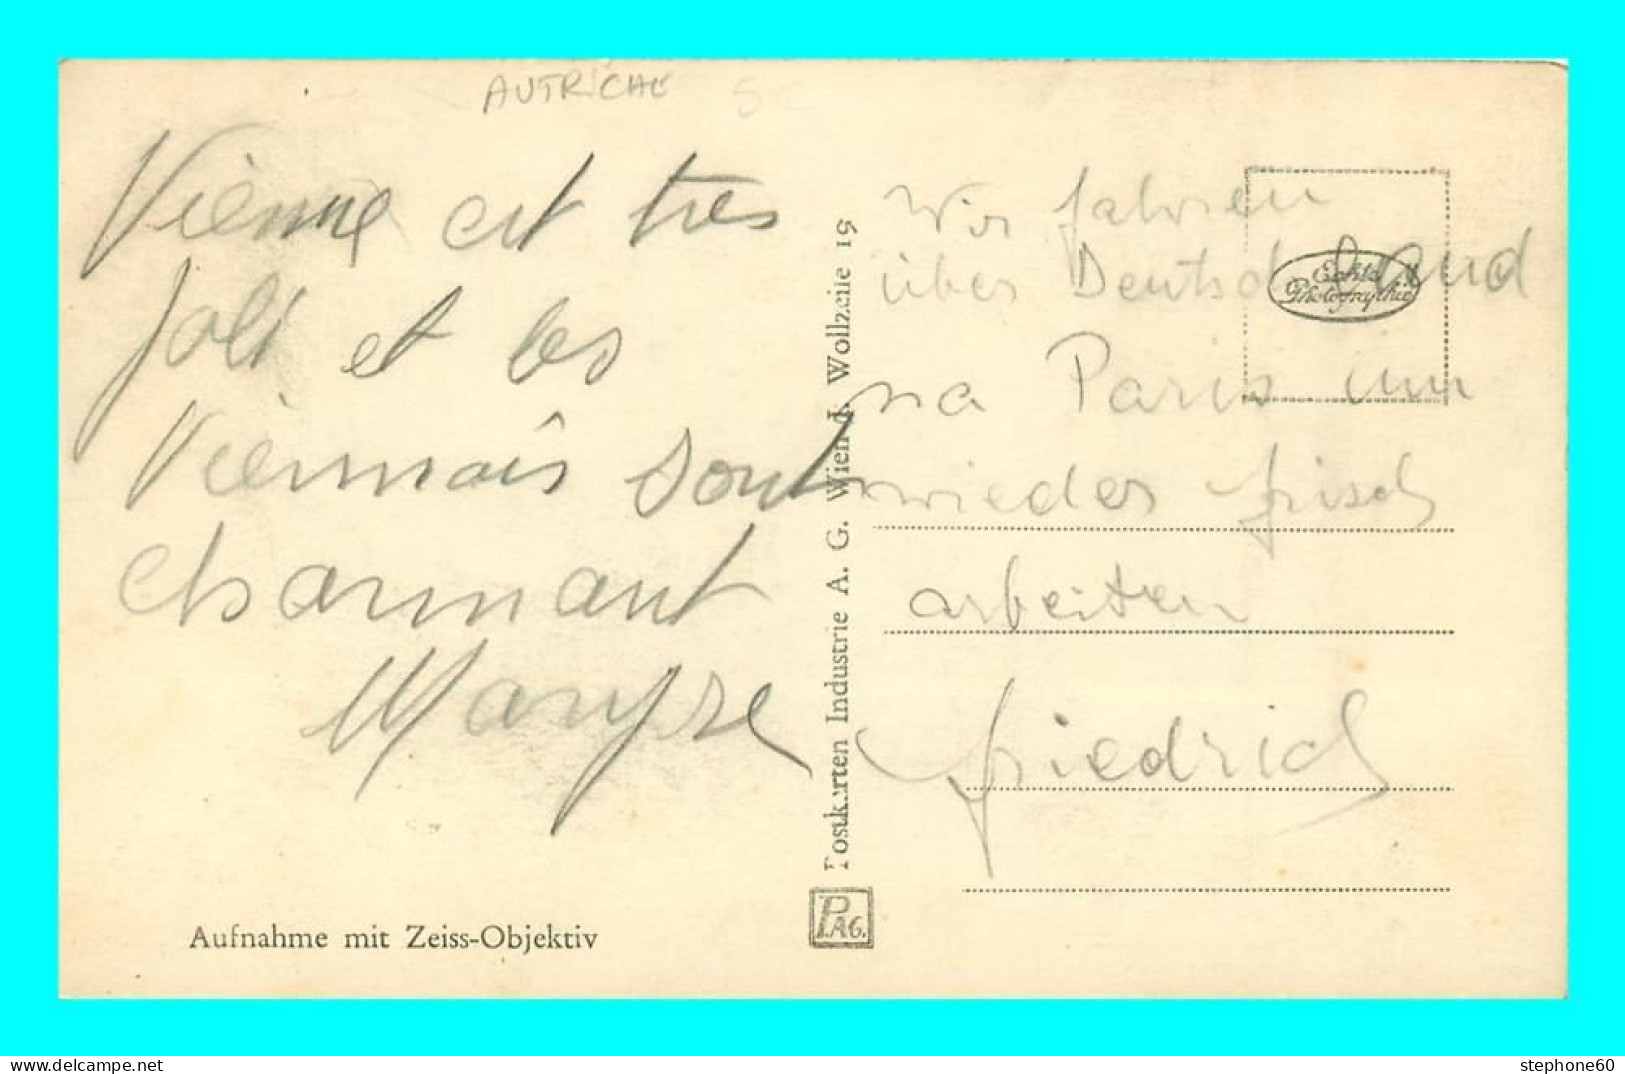 AUTRICHE 5€
Vienne est très
joli et les
Viennois sont
charmant
Maryse
Aufnahme mit Zeiss-Objektiv
Postkarten Industrie A. G. Wien I. Wollzeile 19
P.AG.
Wir fahren
über Deutschland
na Paris um
wieder frisch
arbeiten
Friedrich
Echte
Photographie
stephone60